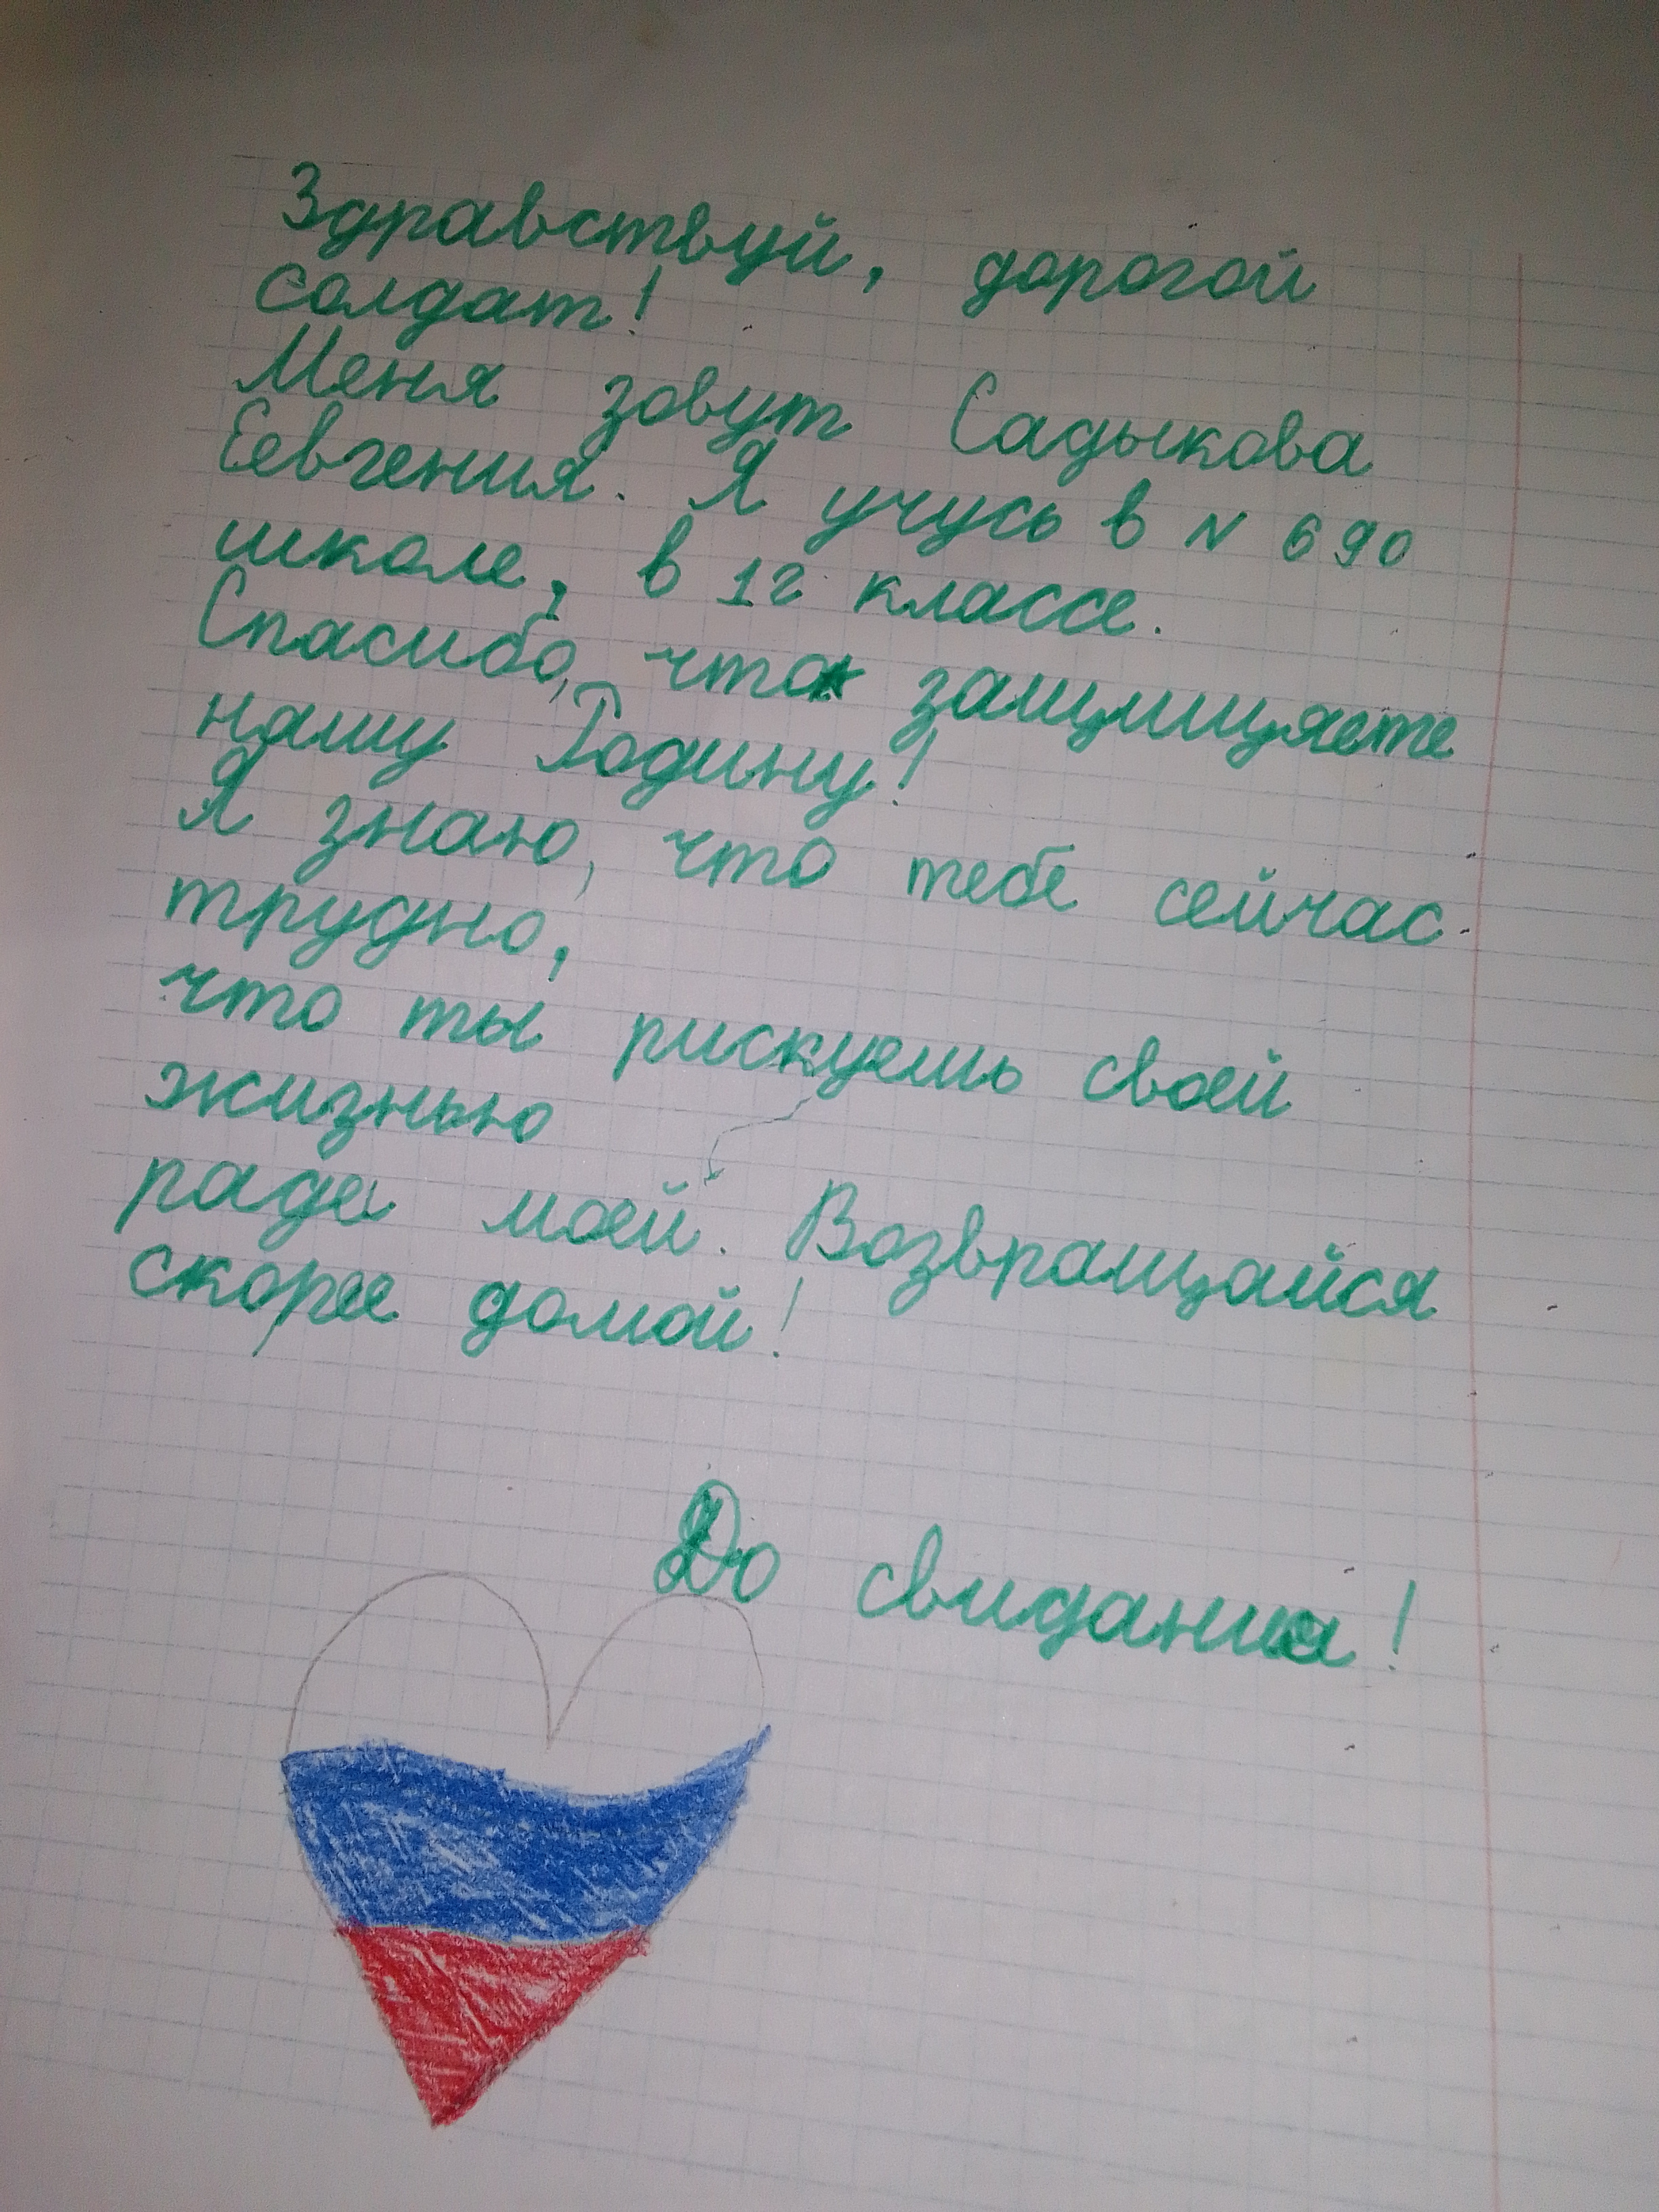 Здравствуй, дорогой
солдат!
Меня зовут Садыкова
Еевгения. Я учусь в N 690
школе, в 1г классе.
Спасибо, что защищяете
нашу Родину!
Я знаю, что тебе сейчас
трудно,
что ты рискуешь своей
жизнью
ради моей. Возвращайся
скорее домой!
До свидания!